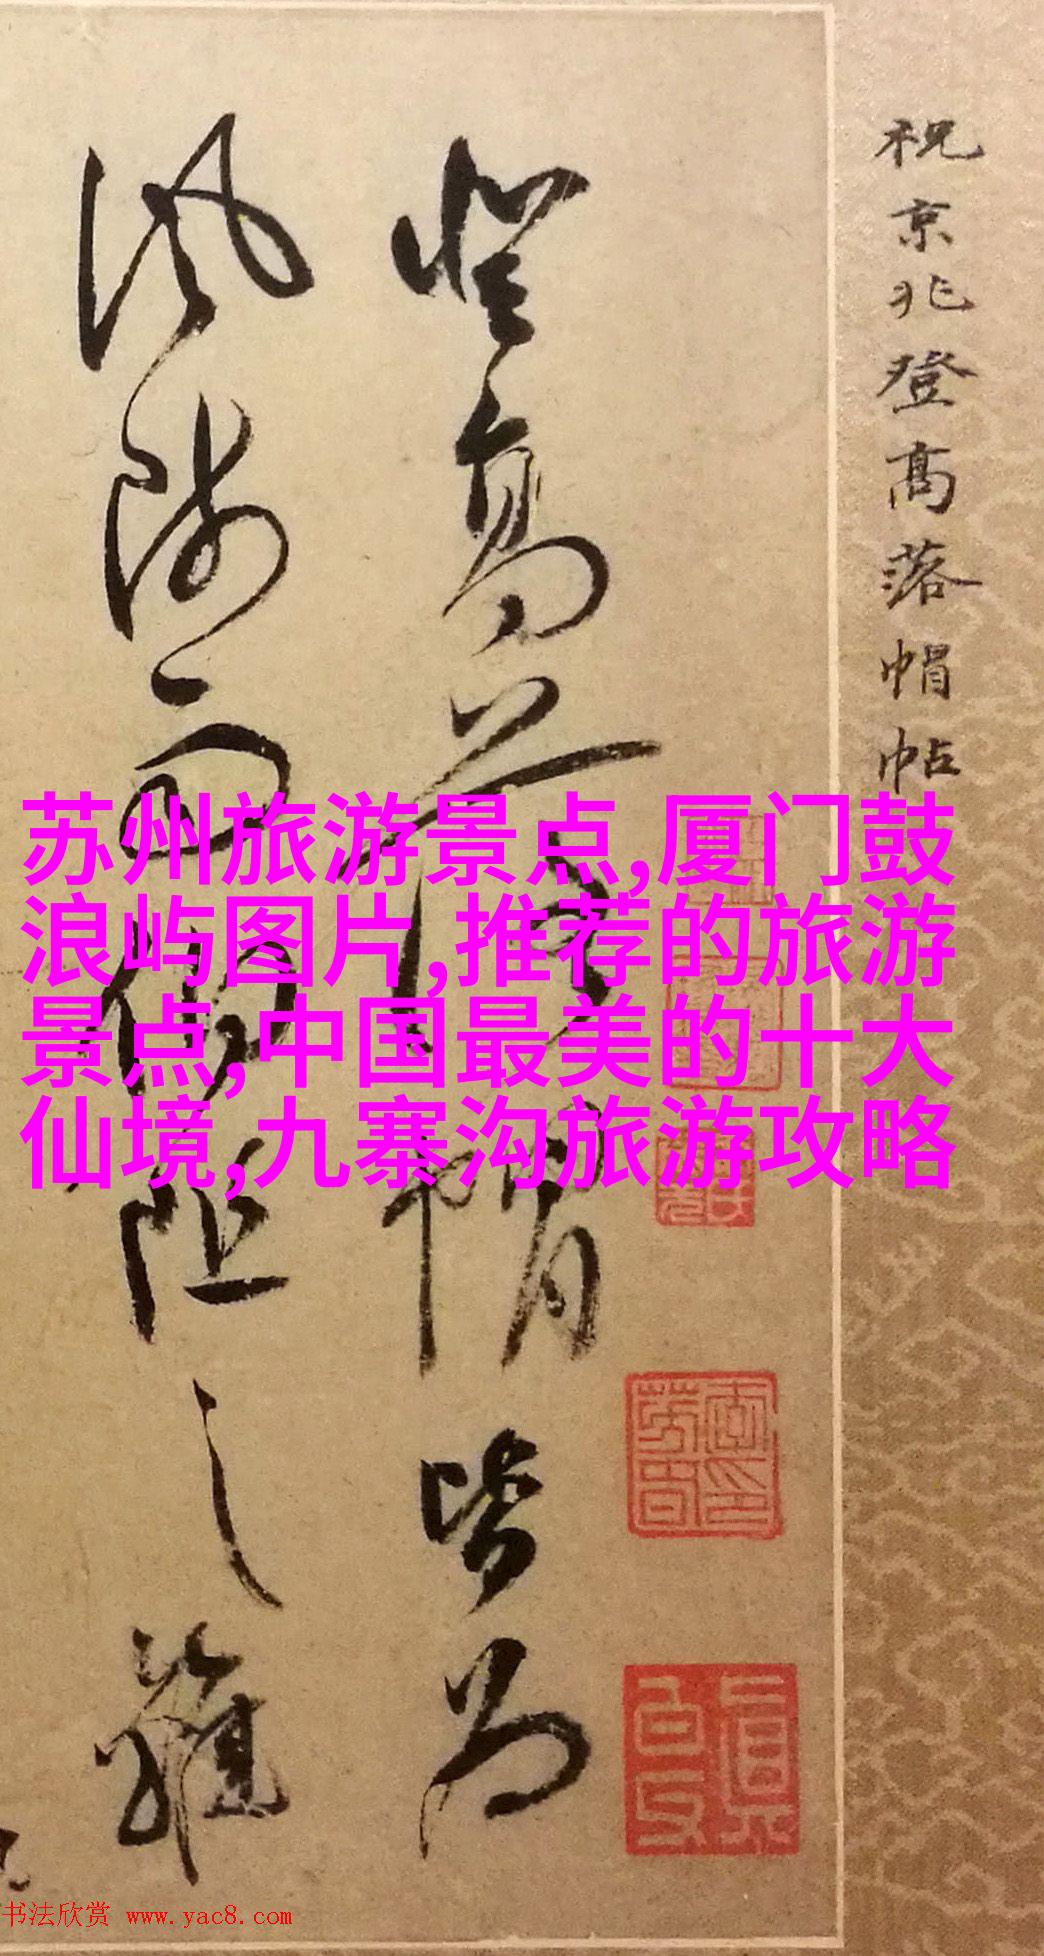 祝京兆登高落帽帖
登高落帽皆为
风师雨伯阻之虽
苏州旅游景点,厦门鼓
浪屿图片,推荐的旅游
景点,中国最美的十大
仙境,九寨沟旅游攻略
书法欣赏 www.yac8.com